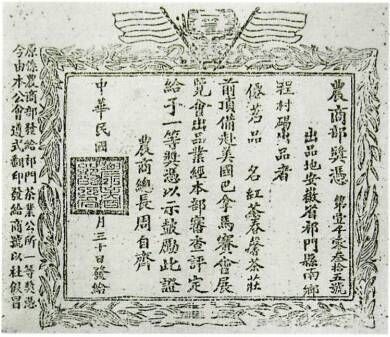 農商部獎憑 第壹千零叁拾五號
出品地安徽省祁門縣南鄉
程村碣出品者
茗品 名紅茶春馨茶莊
前項備赴美國巴拿馬賽會展
覽會出品業經本部審查評定
給予一等獎憑以示鼓勵此證
農商總長周自齊
中華民國 月三十日發給
原係農商部發給祁門茶業公所一等獎憑
今由本公會遵式翻印發給商號以杜假冒